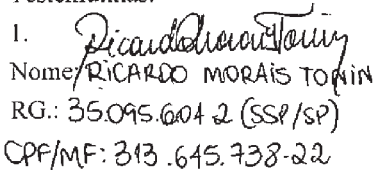 Testemunhas:
1. Ricardo Morais Tonin
Nome: RICARDO MORAIS TONIN
RG.: 35.095.604 2 (SSP/SP)
CPF/MF: 313.645.738-22